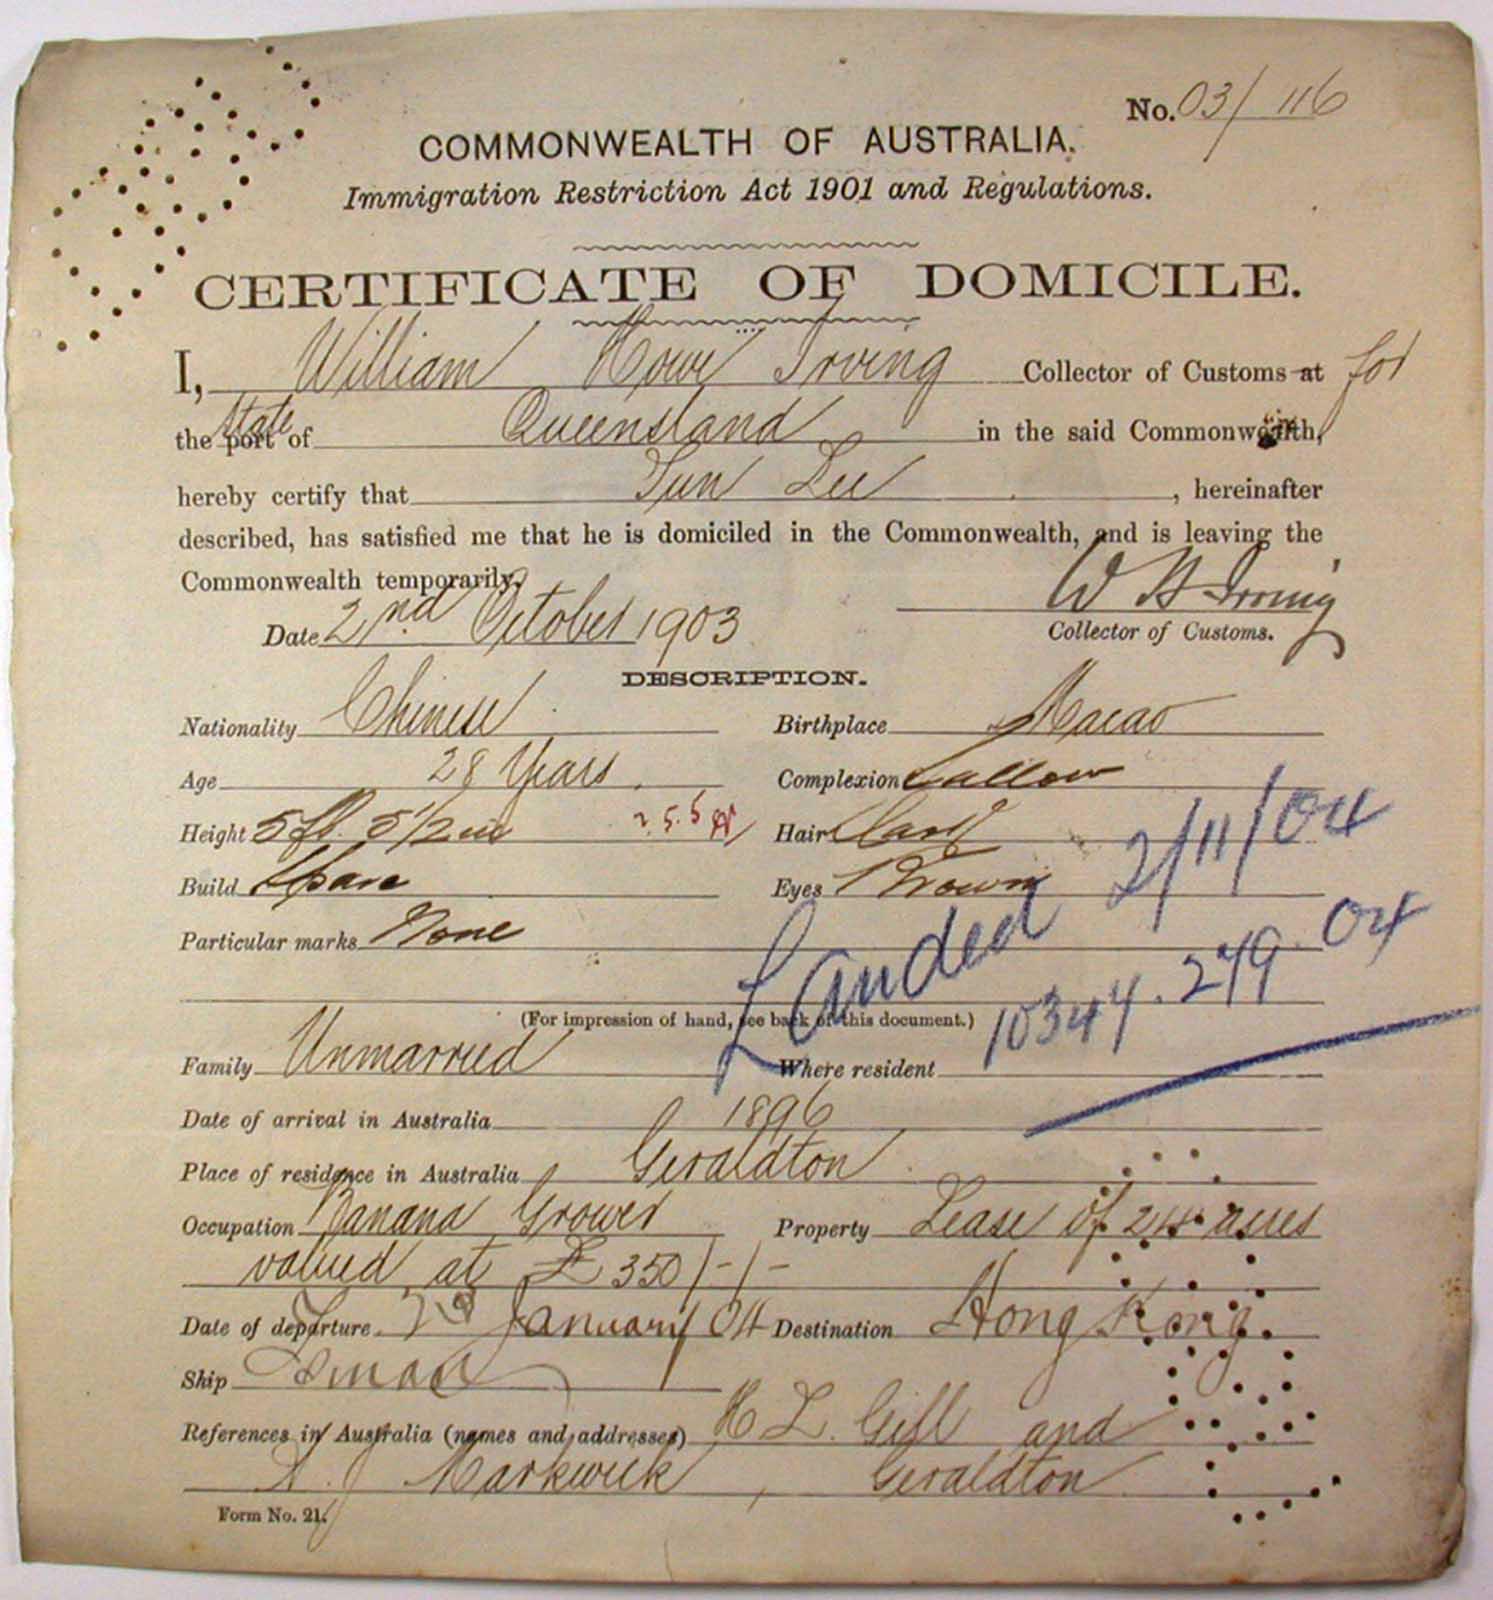 No. 03/116
COMMONWEALTH OF AUSTRALIA.
Immigration Restriction Act 1901 and Regulations.
CERTIFICATE OF DOMICILE.
I, William Howe Irving Collector of Customs at for
the port State of Queensland in the said Commonwealth,
hereby certify that Sun Lee, hereinafter
described, has satisfied me that he is domiciled in the Commonwealth, and is leaving the
Commonwealth temporarily.
W H Irving
Date 2nd October 1903
Collector of Customs.
DESCRIPTION.
Nationality Chinese Birthplace Macao
Age 28 Years Complexion Sallow
Height 5 ft. 5 1/2 in Hair Dark
Build Spare Eyes Brown
Particular marks None
Landed 2/11/04
10344. 279. 04
(For impression of hand, see back of this document.)
Family Unmarried Where resident
Date of arrival in Australia 1896
Place of residence in Australia Geraldton
Occupation Banana Grower Property Lease of 24 acres
valued at £350/-/-
Date of departure January 04 Destination Hong Kong.
Ship
References in Australia (names and addresses) H L. Gill and
Markwick, Geraldton
Form No. 21.